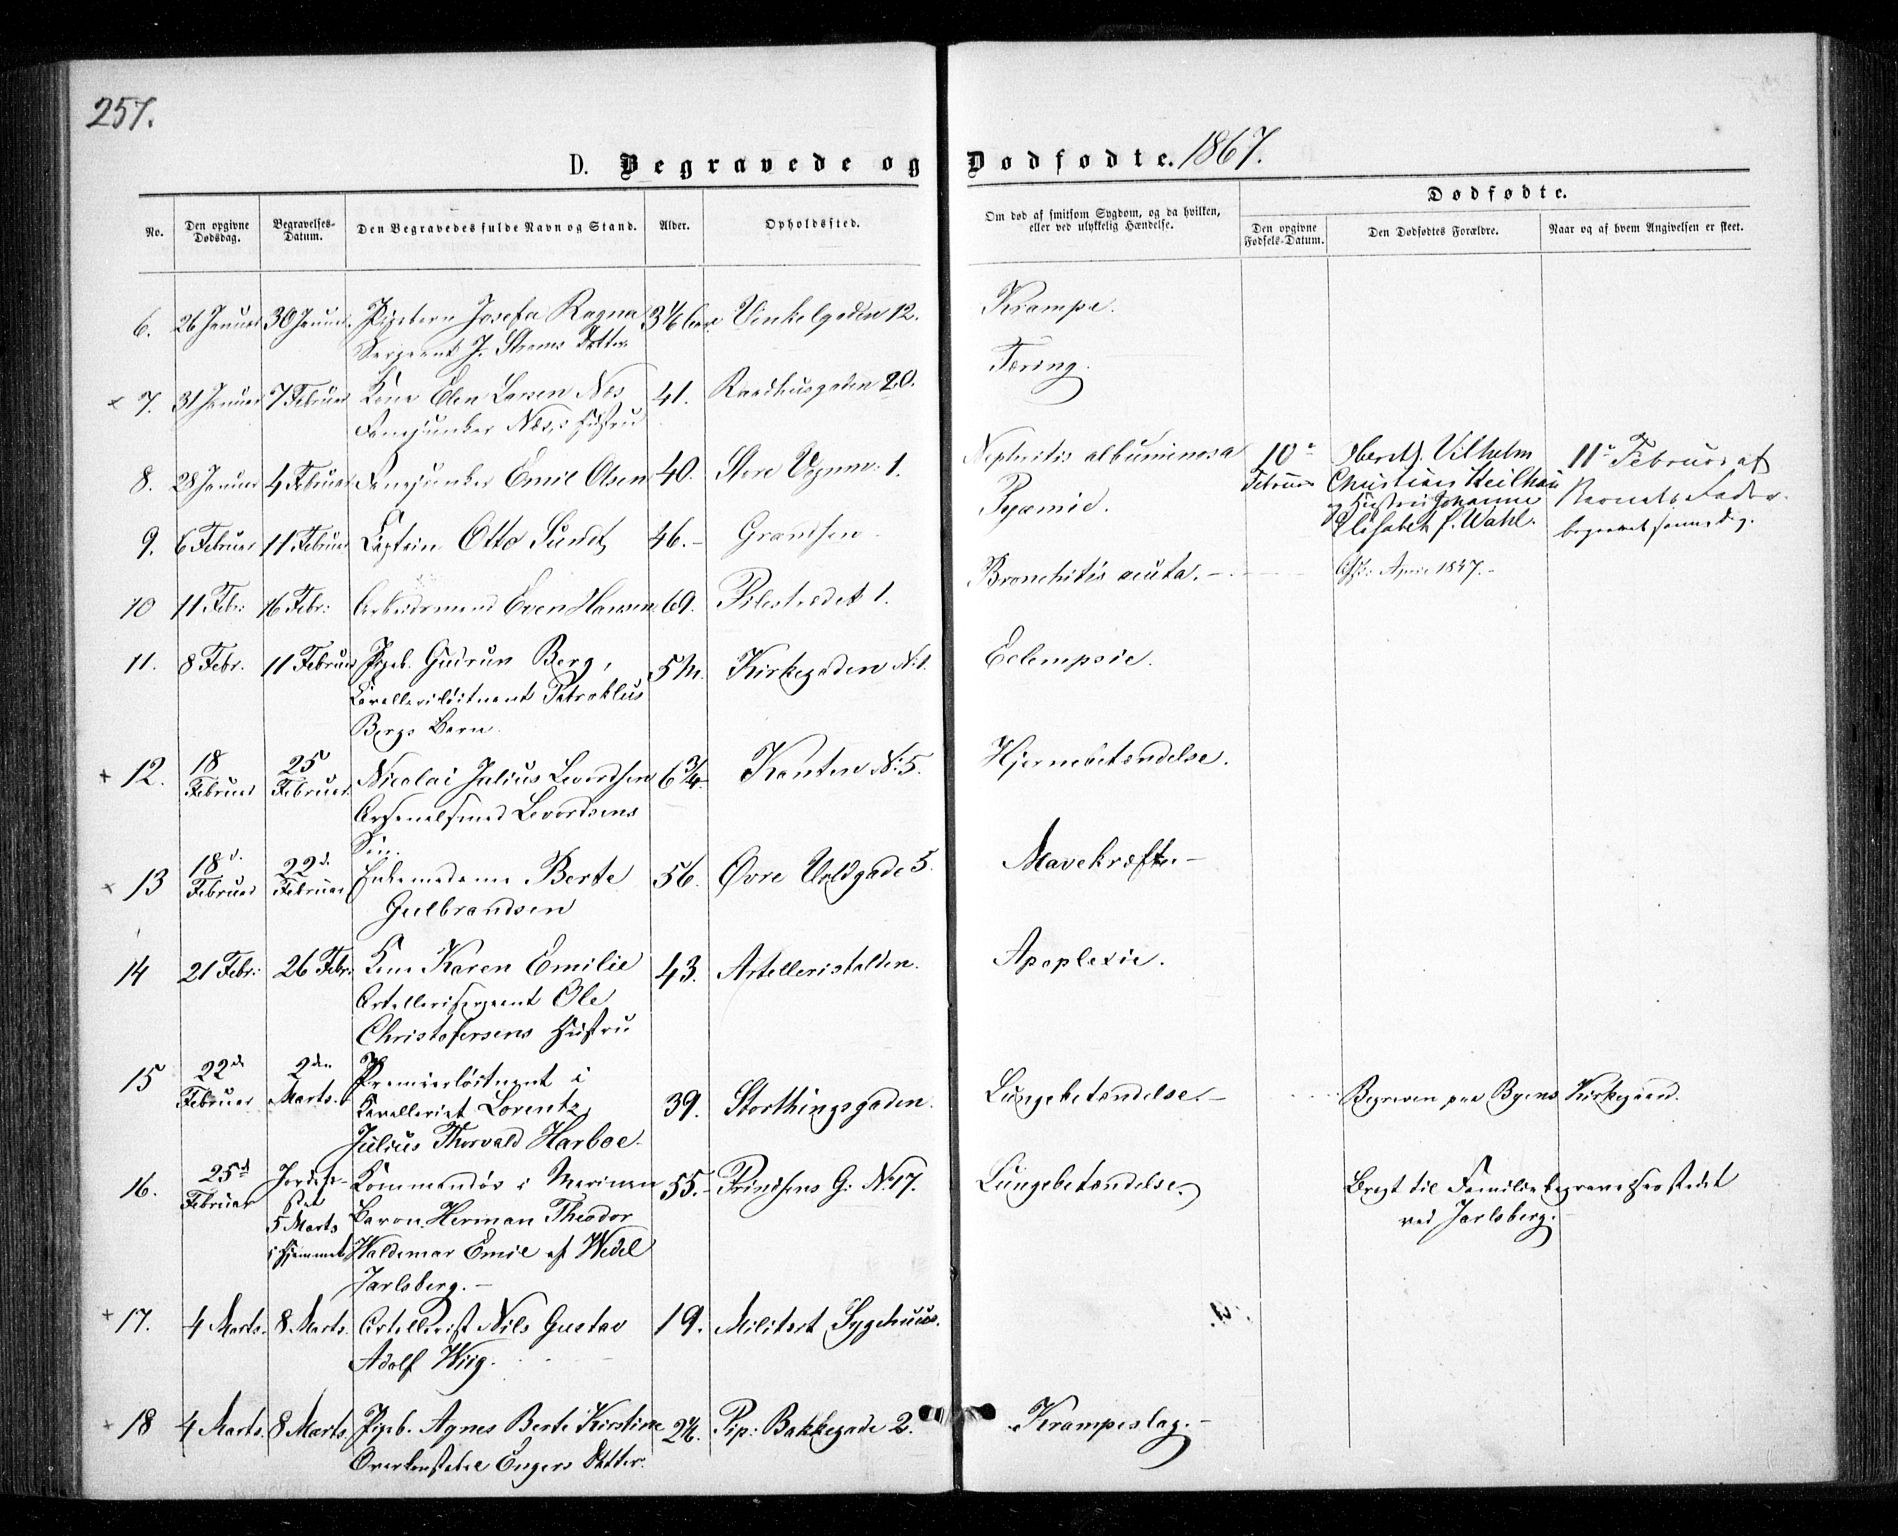 257.
D. Begravede og Dødfødte. 1867.
No.
Den opgivne Dødsdag.
Begravelses-Datum.
Den Begravedes fulde Navn og Stand.
Alder.
Opholdssted.
Om død af smitsom Sygdom, og da hvilken, eller ved ulykkelig Hændelse.
Dødfødte.
Den opgivne Fødsels-Datum.
Den Dødfødtes Forældre.
Naar og af hvem Angivelsen er skeet.
6. 26 Januar 30 Januar Josefa Ragna Vinkelgaden 12. Krampe.
Sergeant J. Strøms Datter
7. 31 Januar 7 Februar Kone Elen Larsen Næs 41. Raadhusgaden 20. Tæring.
Fanejunker Næs's Hustru
8. 28 Januar 4 Februar Fanejunker Emil Olsen 40. Store Vognm: 1. Nephritis albuminosa
10de Februar
Oberstl. Vilhelm
Christian Keilhau
og Hustru Johanne
Elisabeth f. Wahl.
11te Februar af
Barnets Fader.
begravet samme Dag.
9. 6 Februar 11 Februar Captein Otto Sundt 46. Grændsen Pyæmie.
10 11 Febr: 16 Febr: Arbeidsmand Even Hansen 69. Pilestrædet 1. Bronchitis acuta.
11. 8 Febr. 11 Februar Pigeb. Gudrun Berg, 5 M. Kirkegaden N: 1. Eclampsie.
Kavalleriløitnant Patroklus
Bergs Barn.
12. 18 Februar 25 Februar Nicolai Julius Levordsen 6 3/4 Kanten N: 5. Hjernebetændelse.
Arsenalsmed Levordsens
Søn.
13 18d. Februar 22d. Februar Enkemadame Berte 56. Øvre Voldgade 5. Mavekræft.
Gulbrandsen
14 21 Febr: 26 Febr: Kone Karen Emilie 43. Artilleristalden. Apoplexie.
Artillerisergeant Ole
Christofersens Hustru
15 22d Februar 2den Marts. Premierløitnant i
Kavalleriet Lorentz 39. Storthingsgaden. Lungebetændelse. Begraven paa Byens Kirkegaard.
Julius Thorvald Harboe.
16. 25d Februar Jordfæstet 5 Marts i Hjemmet Kommandør i Marinen 55. Prindsens G: N: 17. Lungebetændelse. Bragt til Familiebegravelsesstedet
ved Jarlsberg.
Baron Herman Theodor
Waldemar Emil af Wedel
Jarlsberg.
17. 4 Marts. 8 Marts. Artillerist Nils Gustav 19. Militært Sygehuus.
Adolf Wiig.
18 4 Marts. 8 Marts. Pigeb. Agnes Berte Kirstine Pip: Bakkegade 2. Krampeslag.
Overkonstabel Engers Datter.